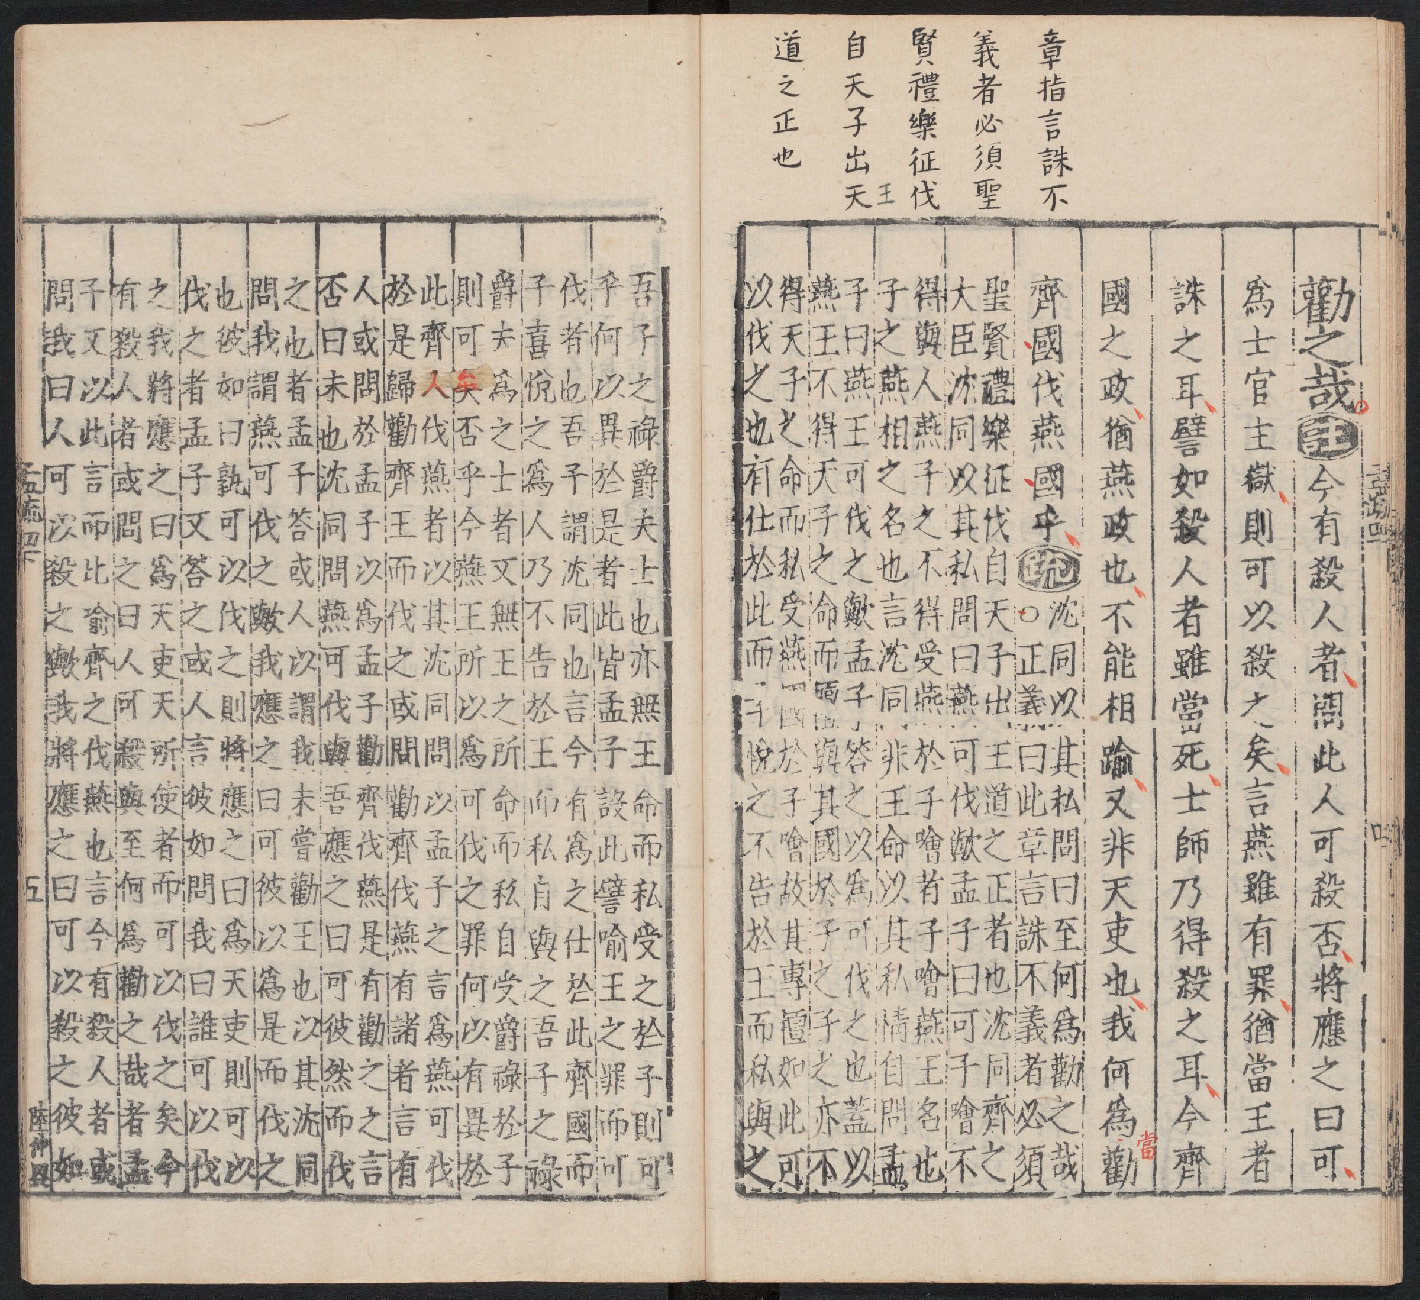 章指言誅不
義者必須聖
賢禮樂征伐
自天子出天
王
道之正也
勸之哉註今有殺人者問此人可殺否將應之曰可
爲士官主獄則可以殺之矣言燕雖有罪猶當王者
誅之耳譬如殺人者雖當死士師乃得殺之耳今齊
國之政猶燕政也不能相踰又非天吏也我何爲勸
當
齊國伐燕國乎疏
沈同以其私問曰至何爲勸之哉
○正義曰此章言誅不義者必須
聖賢禮樂征伐自天子出王道之正者也沈同齊之
大臣沈同以其私問曰燕可伐歟孟子曰可子噲不
得與人燕子之不得受燕於子噲者子噲燕王名也
子之燕相之名也言沈同非王命以其私情自問孟
子曰燕王可伐之歟孟子答之以爲可伐之也蓋以
燕王不得天子之命而擅與其國於子之子之亦不
得天子之命而私受燕國於子噲故其專擅如此可
以伐之也有仕於此而子悅之不告於王而私與之
吾子之祿爵夫士也亦無王命而私受之於子則可
乎何以異於是者此皆孟子設此譬喻王之罪而可
伐者也吾子謂沈同也言今有爲之仕於此齊國而
子喜悅之爲人乃不告於王而私自與之吾子之祿
爵夫爲之士者又無王之所命而私自受爵祿於子
則可矣否乎今燕王所以爲可伐之罪何以有異於
此齊人伐燕者以其沈同問以孟子之言爲燕可伐
於是歸勸齊王而伐之或問勸齊伐燕有諸者言有
人或問於孟子以爲孟子勸齊伐燕是有勸之之言
否曰未也沈同問燕可伐與吾應之曰可彼然而伐
之也者孟子答或人以謂我未嘗勸王也以其沈同
問我謂燕可伐之歟我應之曰可彼以爲是而伐之
也彼如曰孰可以伐之則將應之曰爲天吏則可以
伐之者孟子又答之或人言彼如問我曰誰可以伐
之我將應之曰爲天吏天所使者而可以伐之矣今
有殺人者或問之曰人可殺與至何爲勸之哉者孟
子又以此言而比喻齊之伐燕也言今有殺人者或
問我曰人可以殺之歟我將應之曰可以殺之彼如
孟疏四下
五
陸仲興